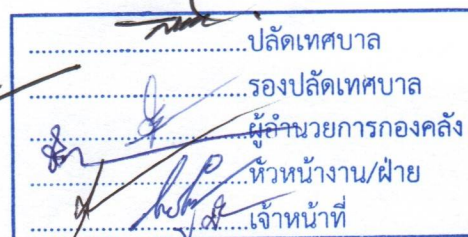 ปลัดเทศบาล
รองปลัดเทศบาล
ผู้อำนวยการกองคลัง
หัวหน้างาน/ฝ่าย
เจ้าหน้าที่